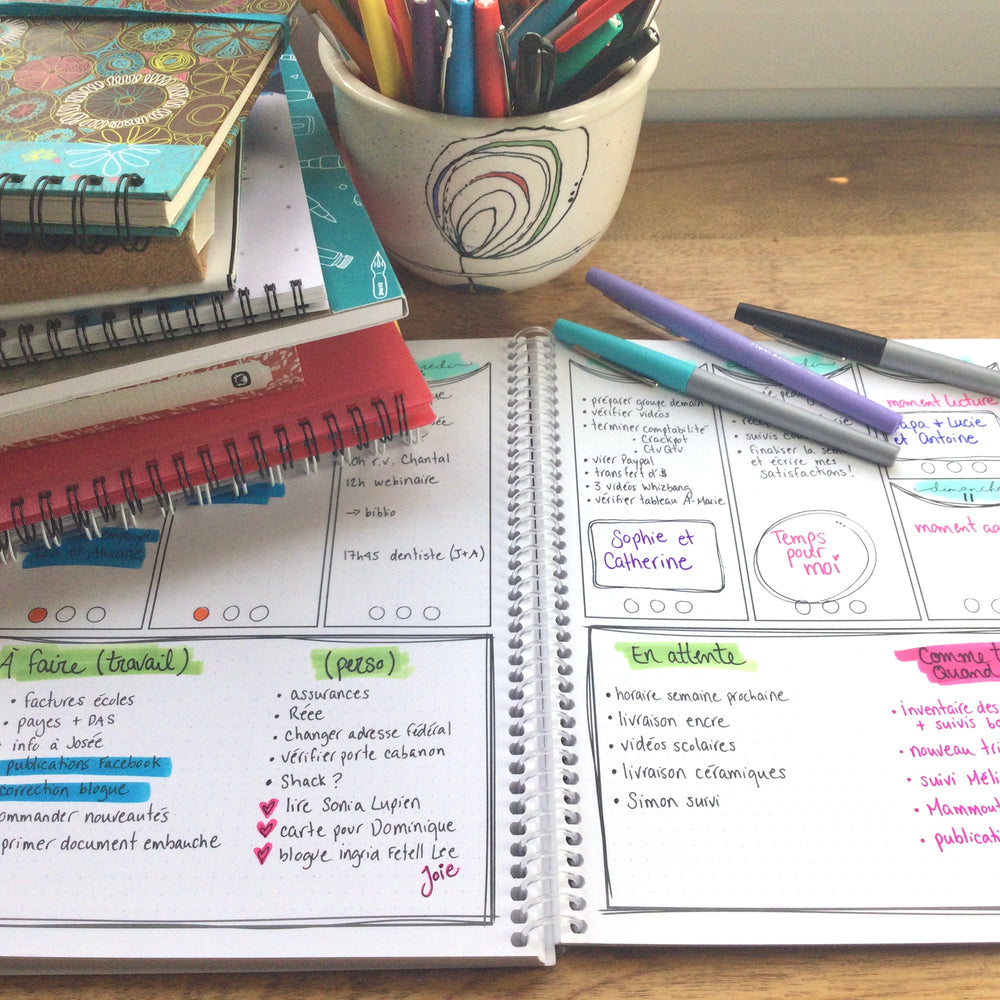 10h r.v. Chantal
12h webinaire
→ biblio
17h45 dentiste (J+A)
et Ahixane
À faire (travail)
• factures écoles
• payes + DAS
• info à Josée
publications Facebook
correction blogue
ommander nouveautés
primer document embauche
(perso)
• assurances
• Réee
• changer adresse fédéral
• vérifier porte cabanon
• Shack ?
lire Sonia Lupien
carte pour Dominique
blogue ingrid Fetell Lee
Joie
• préparer groupe demain
• vérifier vidéos
• terminer comptabilité
• Crackpot
• CtvQtv
• virer Paypal
• transfert d'$
• 3 vidéos Whizbang
• vérifier tableau A-Marie
Sophie et
Catherine
• suivis
• finaliser la
et écrire mes
satisfactions!
Temps
pour
moi
moment lecture
apa + Lucie
et Antoine
dimanche
11
moment
En attente
• horaire semaine prochaine
• livraison encre
• vidéos scolaires
• livraison céramiques
• Simon suivi
Comme t
Quand
• inventaire des
+ suivis
• nouveau tri
• suivi Méli
• Mammout
• publicati